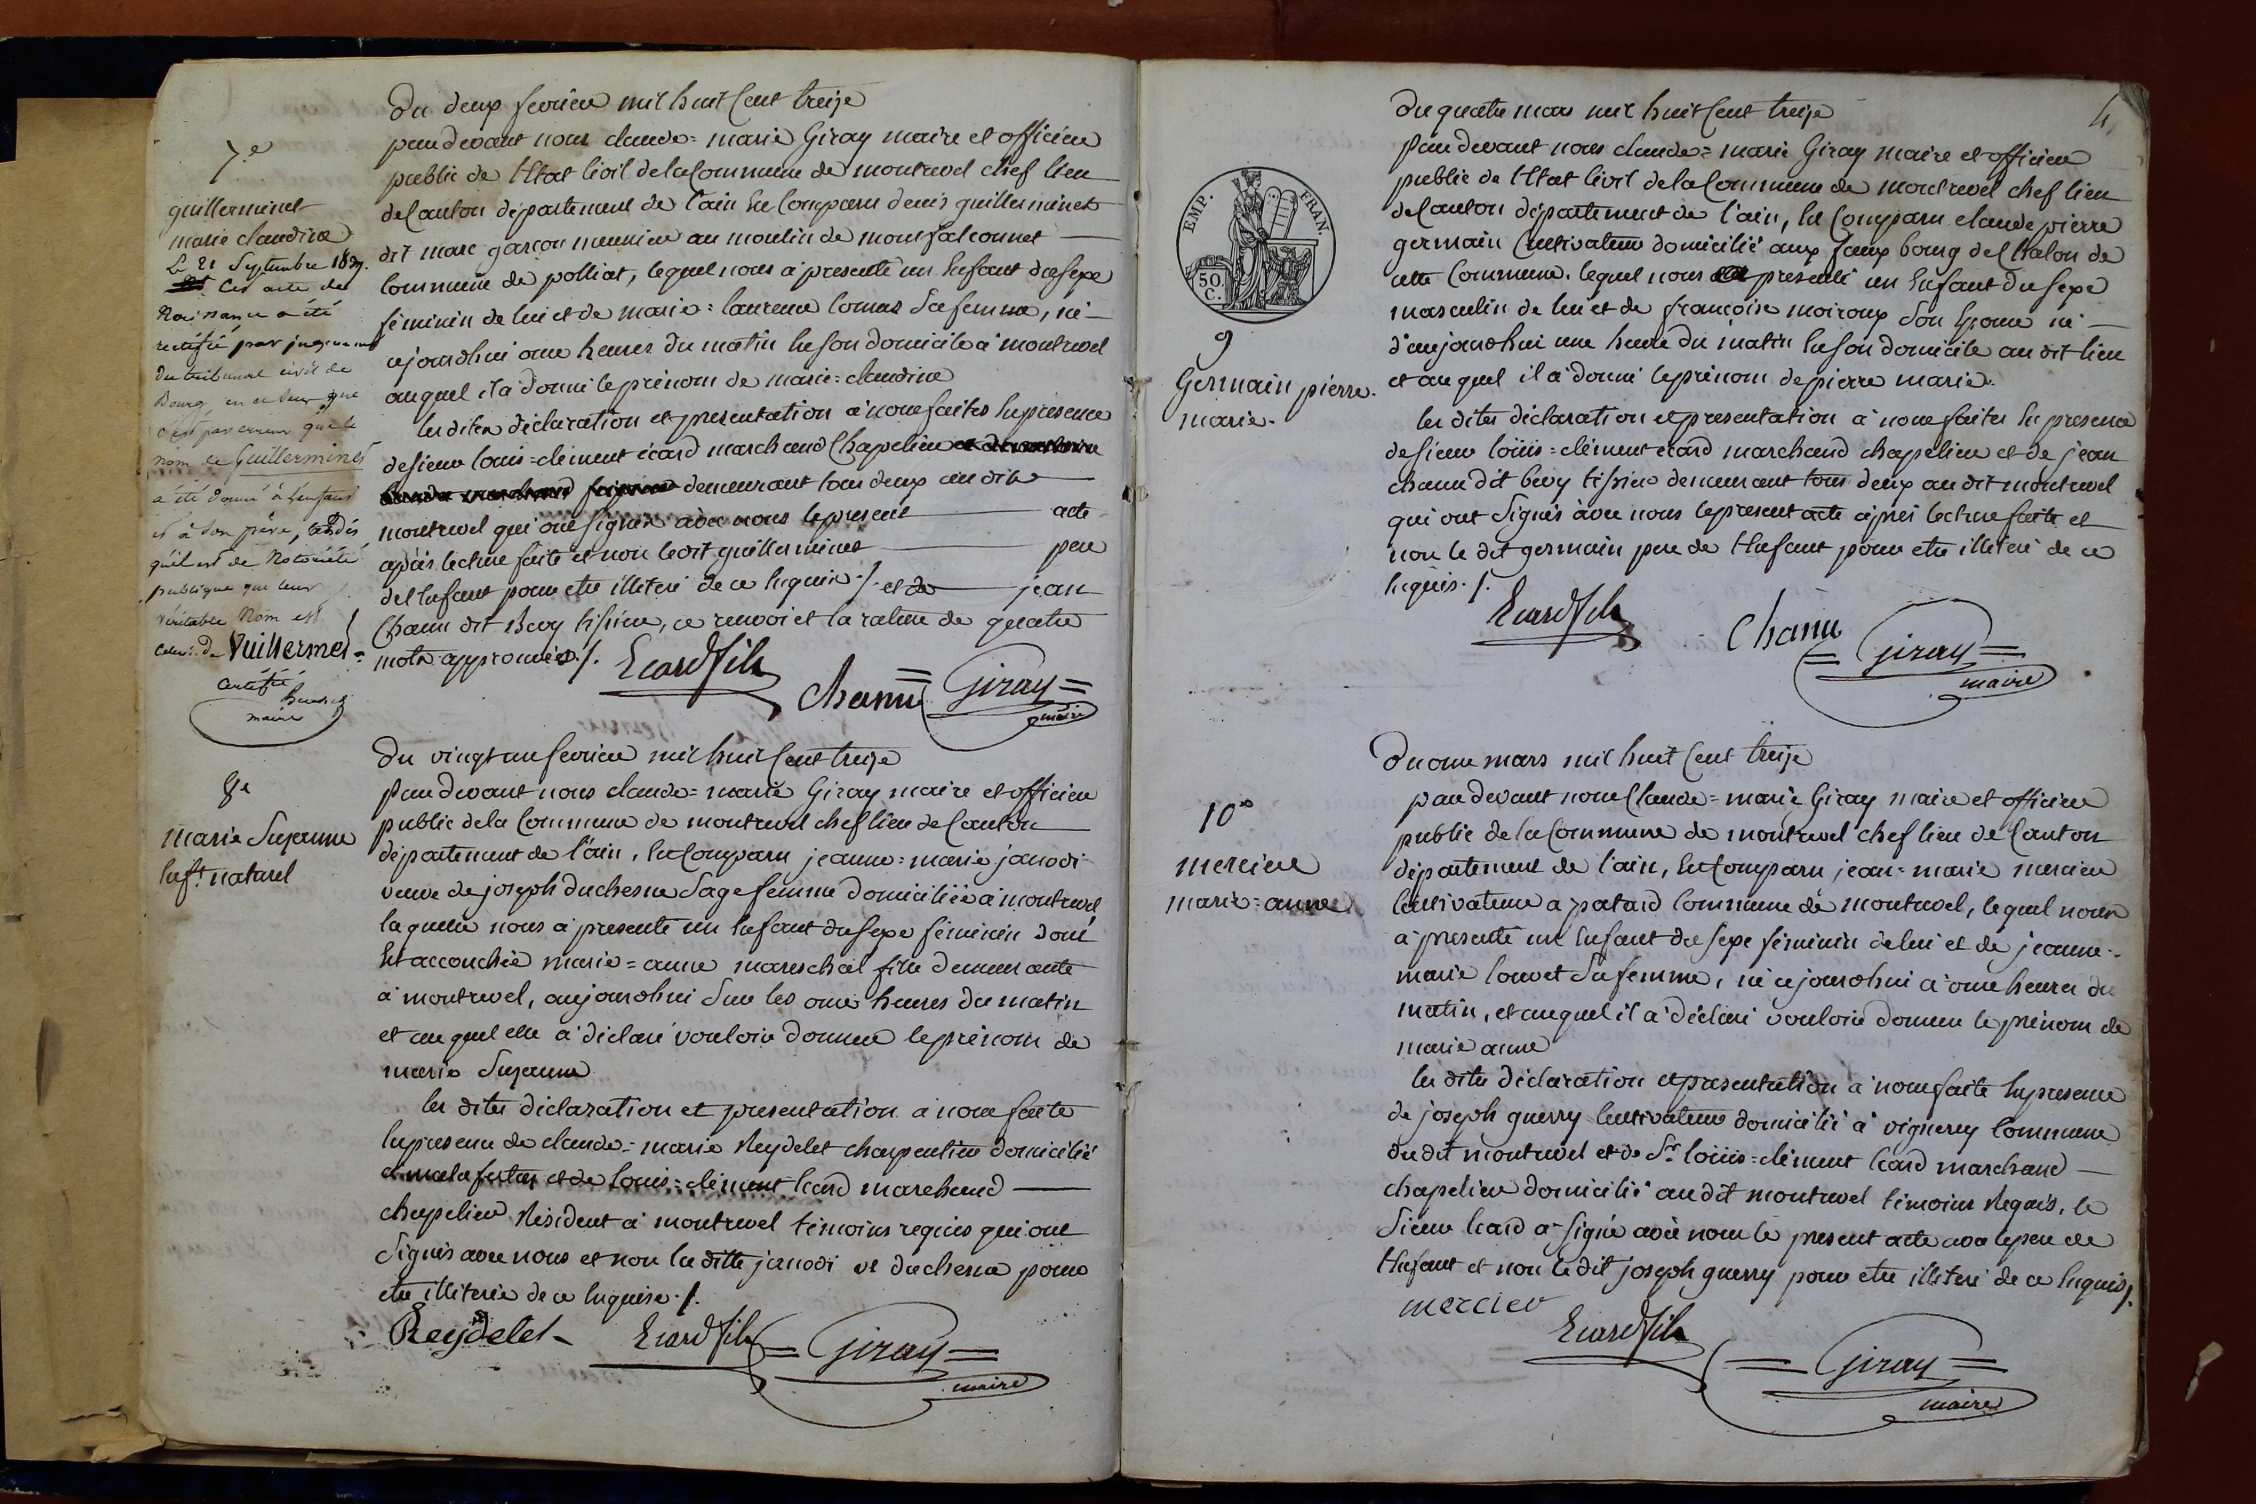 7.e
guillerminet
marie claudine
Le 21 Septembre 18
Cet acte de
Naissance a été
rectifié par jugement
du tribunal civil de
Bourg en ce sens que
c'est par erreur que le
nom de Guillerminet
a été donné à l'enfant
et à son père, tandis
qu'il est de Notoriété
publique que leur
véritable Nom est
celui de Vuillermet =
certifié
maire
du deux fevrier mil huit Cent treize
pardevant nous claude = marie Giray maire et officier
public de l'Etat Civil de la Commune de montrevel chef lieu
de Canton departement de l'ain En Comparu denis guillerminet
dit marc garçon meunier au moulin de montfalconnet
Commune de polliat, lequel nous a presenté un Enfant du sexe
féminin de lui et de marie = laurence Sa femme, né
cejourdhui onze heures du matin En son domicile a montrevel
auquel il a donné le prénom de marie = claudine
les dites déclaration et presentation a nous faites En presence
de sieur louis = clement écard marchand Chapelier
demeurant tous deux au dit
montrevel qui ont signés avec nous le present acte
après lecture faite et non le dit guillerminet pere
de l'Enfant pour etre illiteré de ce Enquis ./. et de jean
Chanu dit Bevy tissier, ce renvoi et la rature de quatre
mots approuvés ./. Ecard fils
Chanu = Giray =
maire
8e
marie Suzanne
Enft. naturel
du vingt un fevrier mil huit Cent treize
Pardevant nous claude = marie Giray maire et officier
public de la Commune de montrevel chef lieu de Canton
département de l'ain, En Comparu jeanne = marie janodi
veuve de joseph duchesne Sage femme domiciliée a montrevel
laquelle nous a presenté un Enfant du sexe féminin dont
Est accouchée marie = anne mareschal fille demeurante
a montrevel, aujourdhui sur les onze heures du matin
et au quel elle a déclaré vouloir donner le prénom de
marie Suzanne
les dites déclaration et presentation a nous faite
En presence de claude = marie Reydelet charpentier domicilié
a malafretaz et de louis = clément Ecard marchand
chapelier Résident a montrevel témoins requis qui ont
Signés avec nous et non la ditte janodi ve duchesne pour
etre illiterée de ce Enquise ./.
Reydelet Ecard fils = Giray =
maire
4
EMP. FRAN.
50.
C.
9
Germain pierre
marie.
du quatre mars mil huit Cent treize
Pardevant nous claude = marie Giray maire et officier
public de l'Etat Civil de la Commune de montrevel chef lieu
de Canton département de l'ain, En Comparu claude pierre
germain Cultivateur domicilié aux faux bourg de l'Etalon de
cette Commune. lequel nous a presenté un Enfant du sexe
masculin de lui et de françoise moiroux Son Epouse né
d'aujourdhui une heure du matin En son domicile au dit lieu
et auquel il a donné le prénom de pierre marie.
les dites déclaration et presentation a nous faites En presence
de sieur loüis = clément ecard marchand chapelier et de jean
chanu dit bevy tissier demeurant tous deux au dit montrevel
qui ont Signés avec nous le present acte après lecture faite et
non le dit germain pere de l'Enfant pour etre illiteré de ce
Enquis ./.
Ecard fils Chanu
= Giray =
maire
10e
mercier
marie = anne
Du onze mars mil huit Cent treize
pardevant nous Claude = marie Giray maire et officier
public de la Commune de montrevel chef lieu de Canton
département de l'ain, En Comparu jean = marie mercier
Cultivateur a patard Commune de montrevel, lequel nous
a presenté un Enfant du sexe féminin de lui et de jeanne =
marie louvet Sa femme, né cejourdhui a onze heures du
matin, et auquel il a déclaré vouloir donner le prénom de
marie anne
les dites déclaration et presentation a nous faite En presence
de joseph guerry Cultivateur domicilié a vignerey Commune
du dit montrevel et de Sr. loüis = clément Ecard marchand
chapelier domicilié au dit montrevel témoins Requis, le
Sieur Ecard a Signé avec nous le present acte avec le pere de
l'Enfant et non le dit joseph guerry pour etre illiteré de ce Enquis ./.
mercier
Ecard fils
= Giray =
maire